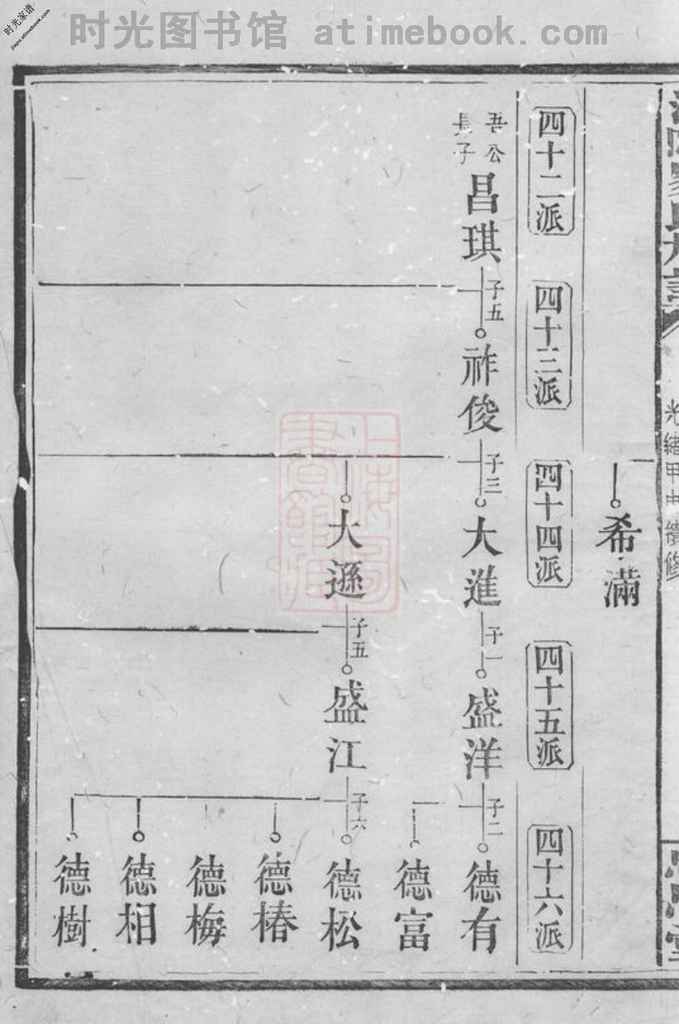 时光图书馆 atimebook.com
时光家谱
www.atimebook.com
光緒甲申續修
希滿
四十二派
四十三派
四十四派
四十五派
四十六派
吾公
長子
昌琪
子五
祚俊
子三
大進
子一
盛洋
子二
德有
德富
大遜
子五
盛江
子六
德松
德椿
德梅
德相
德樹